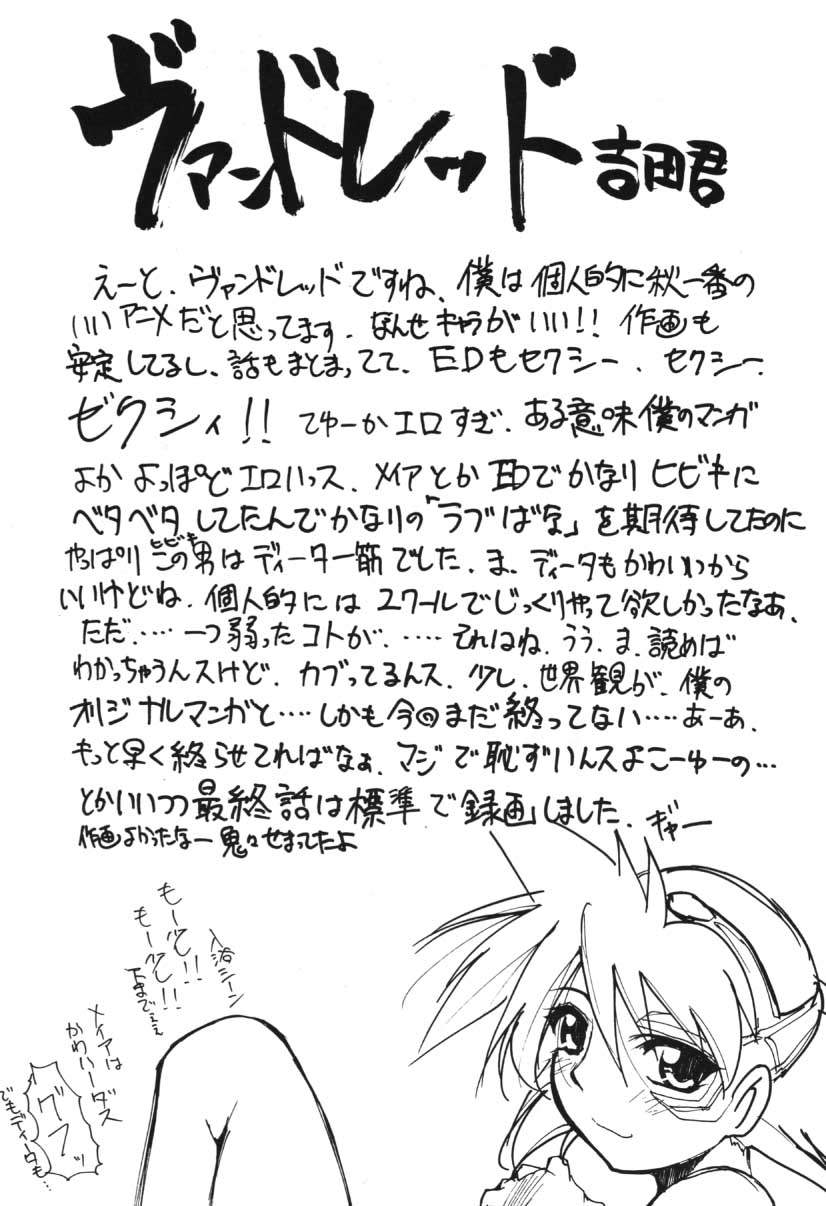 ヴァンドレッド 吉田君
えーと、ヴァンドレッドですね、僕は個人的に秋一番の
いいアニメだと思ってます。なんせキャラがいい!! 作画も
安定してるし、話もまとまってて、EDもセクシー、セクシー
ゼクシィ!! てゆーかエロすぎ、ある意味僕のマンガ
よか よっぽどエロいっス、メイアとか EDでかなり ヒビキに
ベタベタしてたんでかなりの「ラブばな」を期待してたのに
やっぱり この男は ディーター筋でした、ま、ディータもかわいいから
ヒビキ
いいけどね、個人的には スクールでじっくりやって欲しかったなあ、
ただ…… 一つ弱ったコトが、…… それはね、うう、ま、読めば
わかっちゃうんスけど、カブってるんス、少し、世界観が、僕の
オリジナルマンガと…… しかも今回まだ終ってない…… あーあ、
もっと早く終らせてればなぁ、マジで恥ずいんスよこーゆーの…
とかいいつつ 最終話は標準で録画しました、ギャー
作画よかったなー 鬼々せまってたよ
入浴シーン
もー少し!!
もー少し!!
下までぇぇ
メイアは
かわいーダス
グフッ
でもディータも…